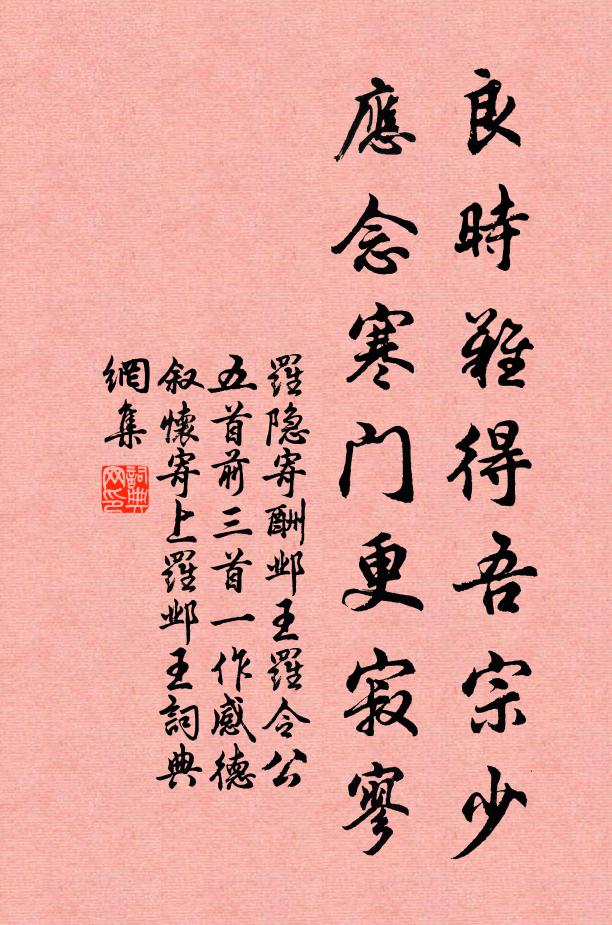 良時難得吾宗少
應念寒门更寂寥
羅隐寄酬邺王羅令公
五首前三首一作感德
叙懷寄上羅邺王詞典
網集
詞典网印